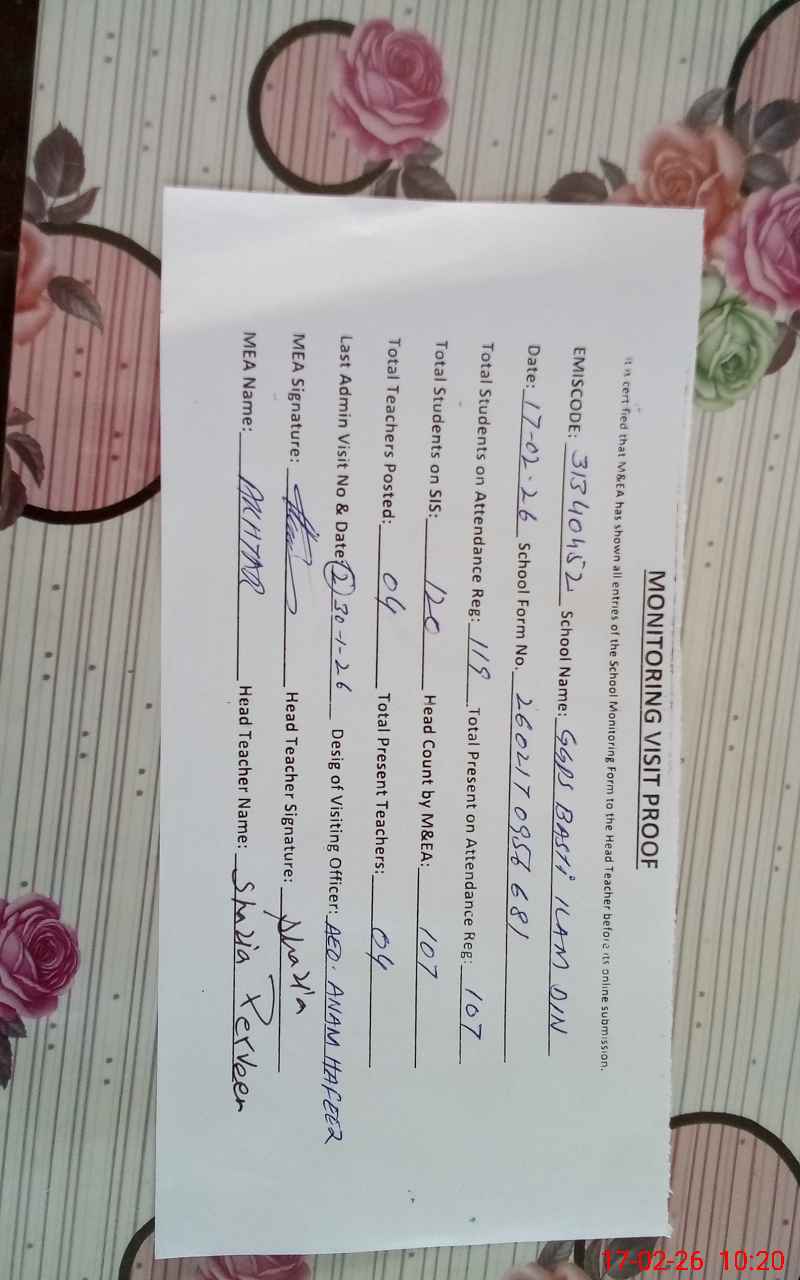 MONITORING VISIT PROOF
It is certified that M&EA has shown all entries of the School Monitoring Form to the Head Teacher before its online submission.
EMISCODE: 31340452 School Name: GGPS BASTI ILAM DIN
Date: 17-02-26 School Form No. 260217 0956 681
Total Students on Attendance Reg: 119 Total Present on Attendance Reg: 107
Total Students on SIS: 120 Head Count by M&EA: 107
Total Teachers Posted: 04 Total Present Teachers: 04
Last Admin Visit No & Date: (2) 30-1-26 Desig of Visiting Officer: AEO. ANAM HAFEEZ
MEA Signature: Head Teacher Signature: Shazia
MEA Name: AKHTAR Head Teacher Name: Shazia Perveen
17-02-26 10:20